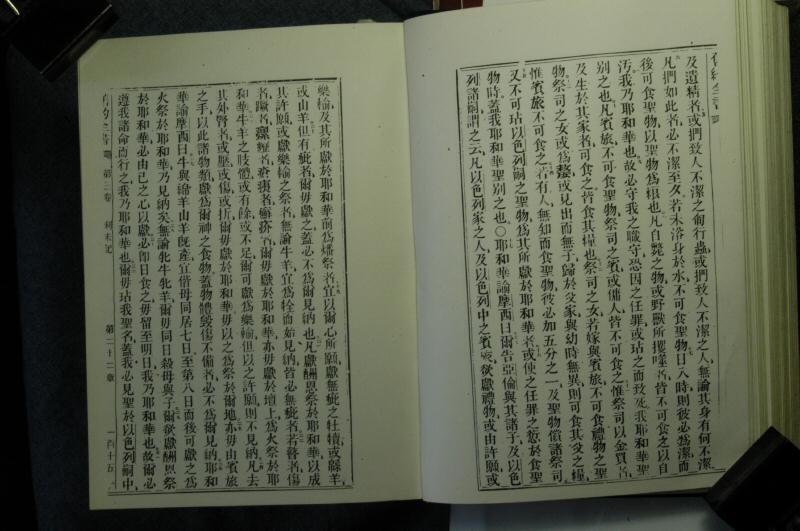 及遺精者或捫致人不潔之匍行蟲或捫致人不潔之人無論其身有何不潔
凡捫如此者必不潔至夕若未浴身於水不可食聖物日入時則彼必為潔而
後可食聖物以聖物為糧也凡自斃之物或野獸所攫噬者皆不可食之以自
汚我乃耶和華也故必守我之職守恐因之任罪或玷之而致死我耶和華聖
別之也凡賓旅不可食聖物祭司之賓或傭人皆不可食之惟祭司以金買者
及生於其家者可食之皆食其糧也祭司之女若嫁與賓旅不可食禮物之聖
物祭司之女或為嫠或見出而無子歸於父家與幼時無異則可食其父之糧
惟賓旅不可食之若有人無知而食聖物彼必加五分之一及聖物償諸祭司
又不可玷以色列嗣之聖物為其所獻於耶和華者或使之任罪之愆於食聖
物時蓋我耶和華聖別之也〇耶和華諭摩西曰爾告亞倫與其諸子及以色
列諸嗣謂之云凡以色列家之人及以色列中之賓旅欲獻禮物或由許願或
樂輸及其所獻於耶和華前為燔祭者宜以爾心所願獻無疵之牡犢或緜羊
或山羊但有疵者爾毋獻之蓋必不為爾見納也凡獻酬恩祭於耶和華以成
其許願或獻樂輸之祭者無論牛羊宜為栓而始見納皆必無疵者若瞽者傷
和華牛羊之肢體或有餘或不足爾可獻為樂輸但以之許願則不見納凡去
其外腎者或壓或傷或折爾毋獻於耶和華毋以之為祭於爾地亦毋由賓旅
之手以此諸物類獻為爾神之食物蓋物體毀傷不備者必不為爾見納耶和
華諭摩西曰牛與緜羊山羊旣產宜偕母同居七日至第八日而後可獻之為
火祭於耶和華乃見納矣無論牝牛牝羊爾毋同日殺母與子爾欲獻酬恩祭
於耶和華必由己之心以獻必卽日食之毋留至明日我乃耶和華也故爾必
遵我諸命而行之我乃耶和華也爾毋玷我聖名蓋我必見聖於以色列嗣中
第三卷 利未記 第二十二章 一百十五